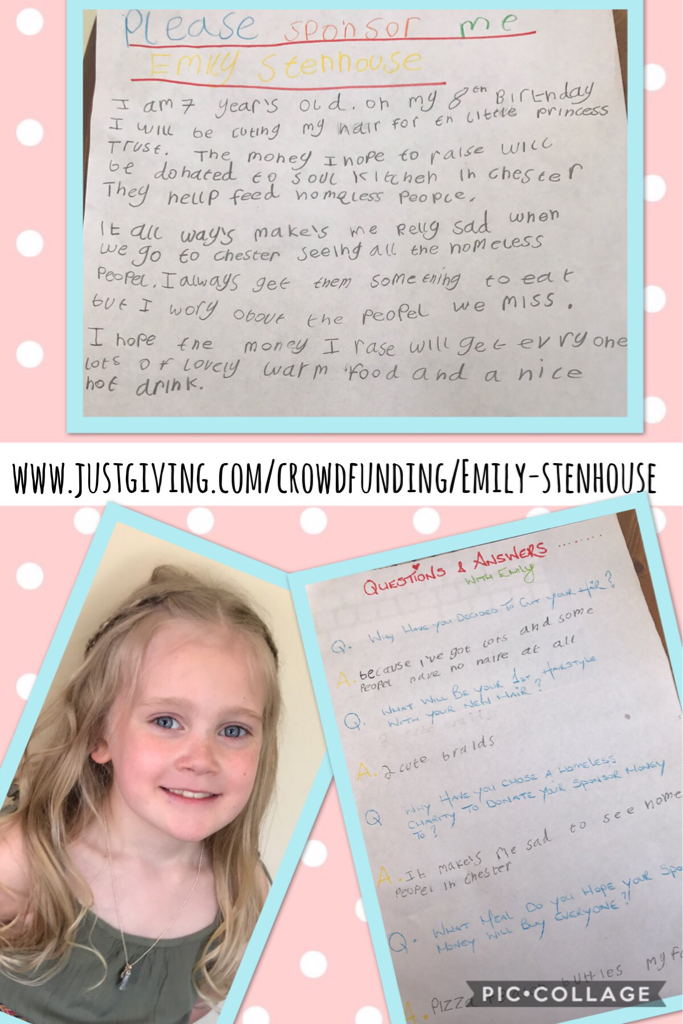 Please sponsor me
Emily Stenhouse
I am 7 year's old. on my 8th Birthday
I will be cuting my hair for th Little princess
Trust. The money I hope to raise will
be donated to soul kitchen in chester
They hellp feed homeless people.
It all way's make's me relly sad when
we go to chester seeing all the homeless
peopel. I always get them something to eat
but I wory obout the peopel we miss.
I hope the money I rase will get evryone
lots of lovely warm food and a nice
hot drink.
www.justgiving.com/crowdfunding/Emily-stenhouse
Questions & Answers ........
with Emily
Q. Why Have you Decided To Cut your Hair?
A. because i've got lots and some
peopel have no haire at all
Q. What Will Be your 1st Hairstyle
With your New Hair?
A. 2 cute braids
Q Why Have you chose A Homeless
Charity To Donate your Sponsor Money
To?
A. It make's me sad to see home
peopel in chester
Q. What Meal Do you Hope your Spo
Money Will Buy Everyone?
A. Pizza butties my fa
PIC•COLLAGE